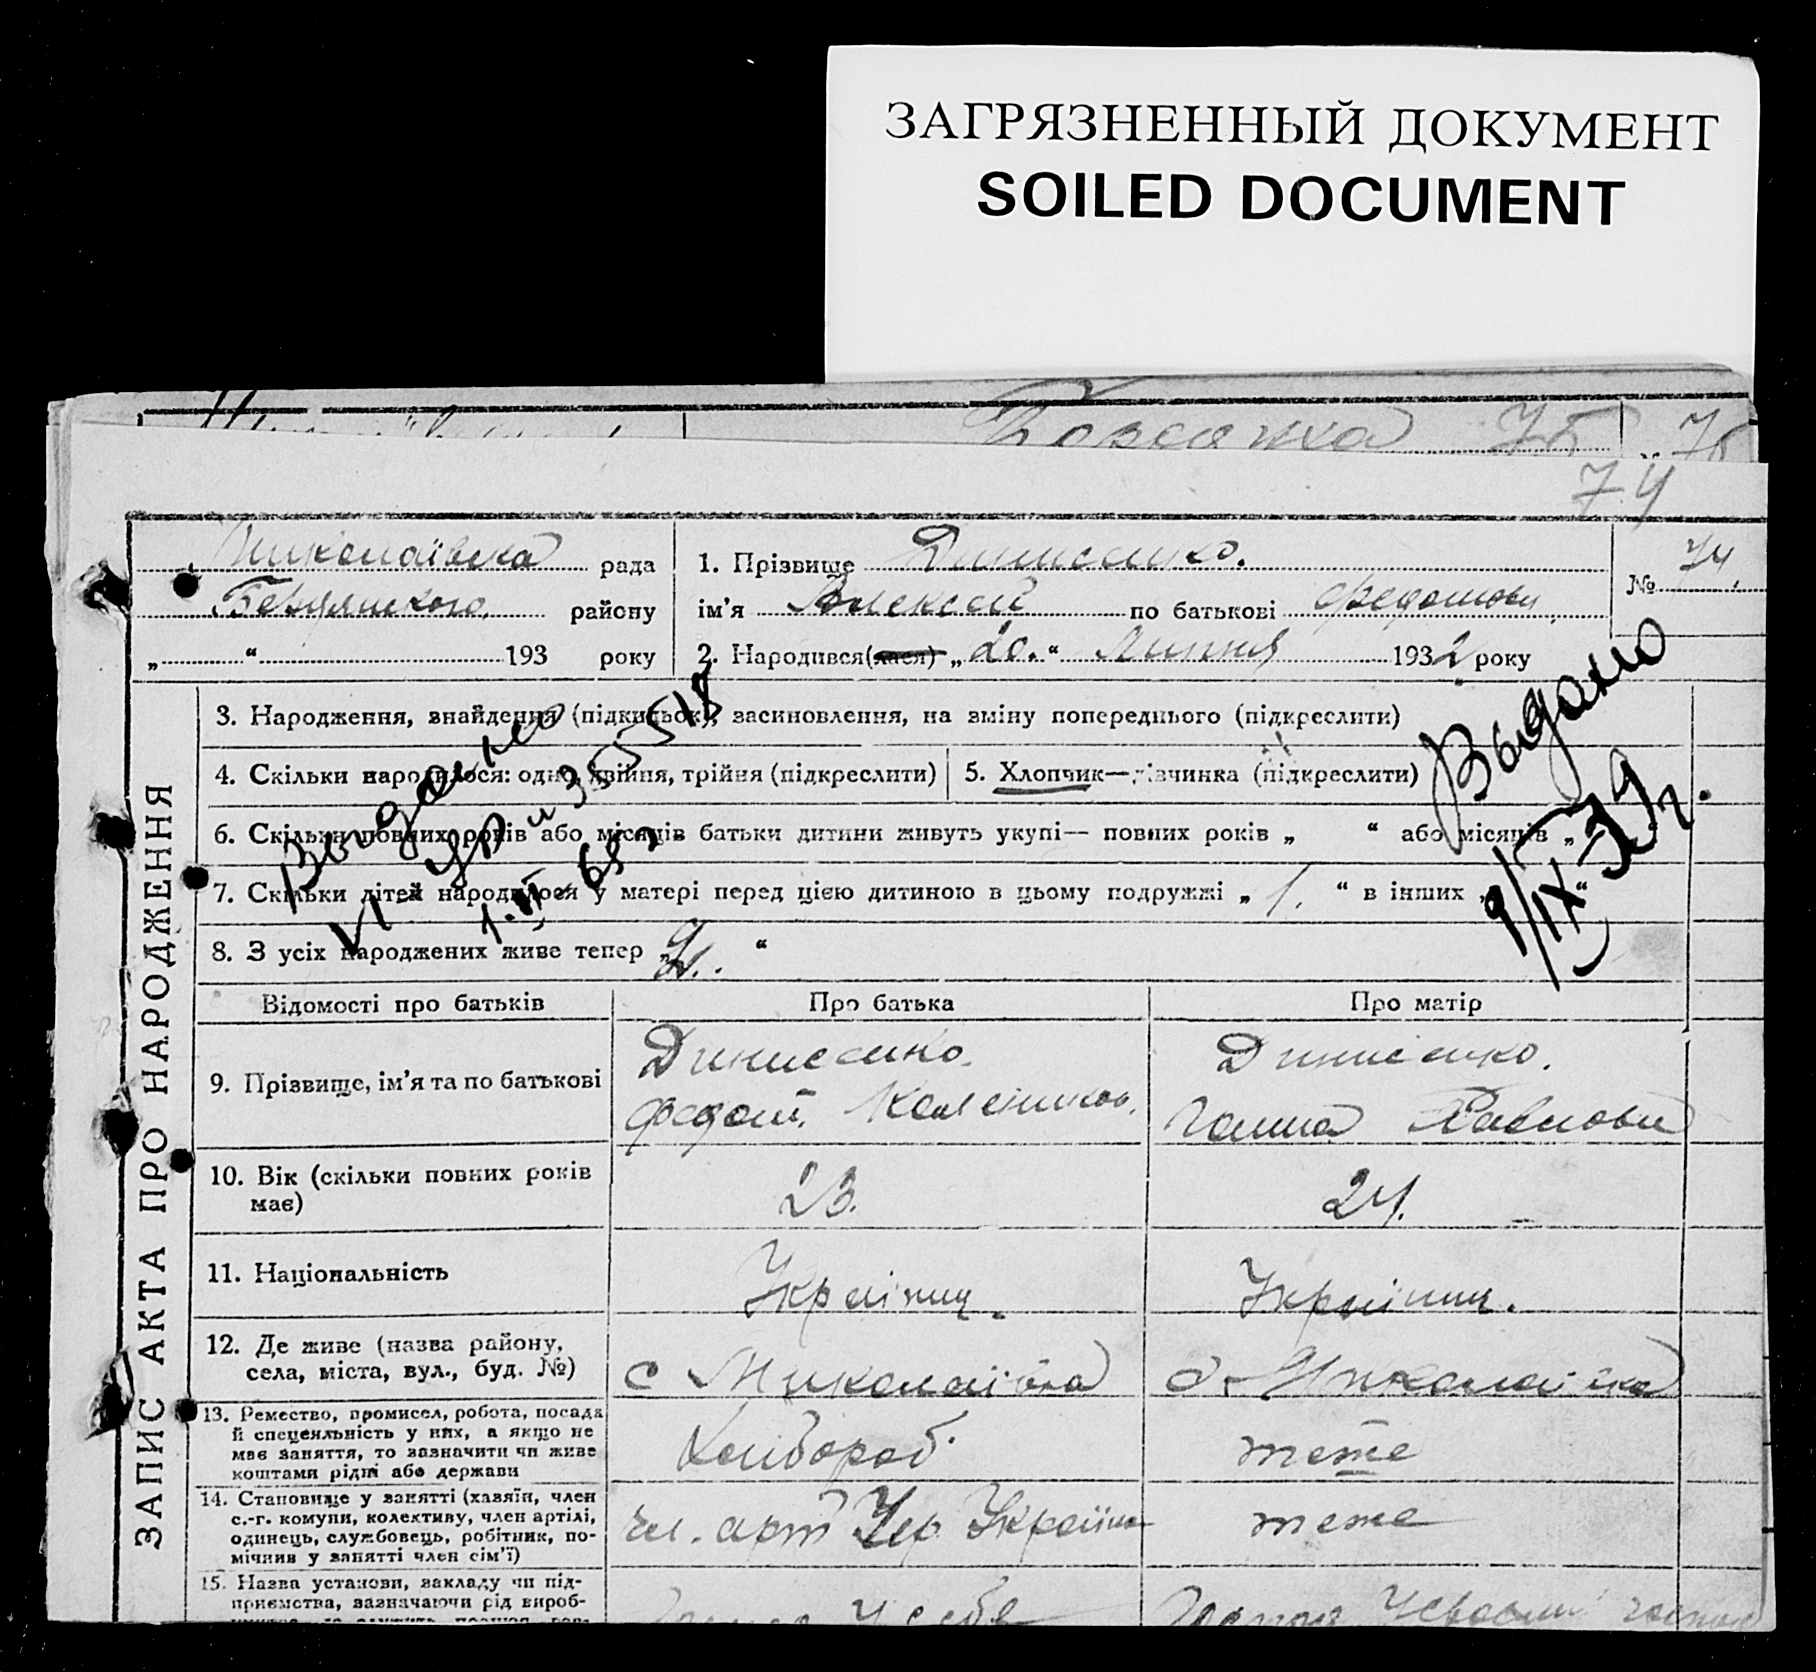 ЗАГРЯЗНЕННЫЙ ДОКУМЕНТ
SOILED DOCUMENT
75 75
74
Миколаївска рада
Бердянского району
„ “ 193 року
1. Прізвище Динисенко.
ім’я Алексей по батькові Федотови
2. Народився(лася) „20.“ Липня 1932 року
№ 74.
ЗАПИС АКТА ПРО НАРОДЖЕННЯ
3. Народження, знайдення (підкидьок), засиновлення, на зміну попереднього (підкреслити)
4. Скільки народилося: одно, двійня, трійня (підкреслити)
5. Хлопчик—дівчинка (підкреслити)
6. Скільки повних років або місяців батьки дитини живуть укупі— повних років „ “ або місяців „
7. Скільки дітей народилося у матері перед цією дитиною в цьому подружжі „ 1. “ в інших „ “
8. З усіх народжених живе тепер „2.“
Выдано
Выдано
9/IX-79г.
Відомості про батьків Про батька Про матір
9. Прізвище, ім’я та по батькові
Динисенко.
Федот.
Динисенко.
Ганна Павлови
10. Вік (скільки повних років має)
23.
24.
11. Національність
Українц.
Українц.
12. Де живе (назва району,
села, міста, вул., буд. №)
с Миколаївка
с. Миколаївка
13. Ремество, промисел, робота, посада
й спецеяльність у них, а якщо не
має заняття, то зазначити чи живе
коштами рідні або держави
Хлібороб.
теже
14. Становище у занятті (хазяїн, член
с.-г. комуни, колективу, член артілі,
одинець, службовець, робітник, по-
мічник у занятті член сім’ї)
чл. арт Чер Україна
теже
15. Назва установи, закладу чи під-
приємства, зазначаючи рід вироб-